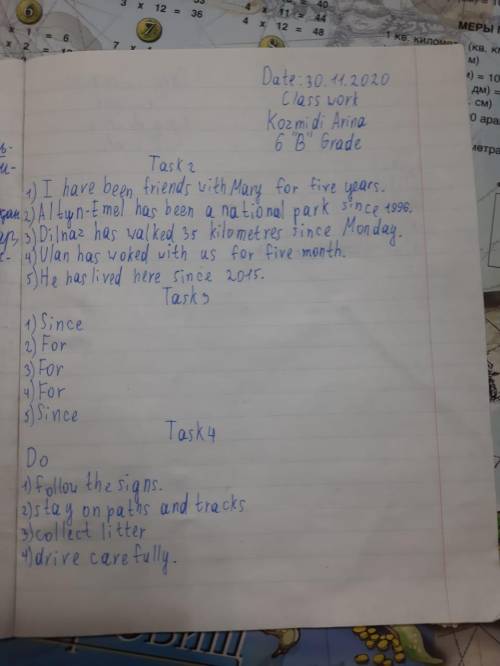 3 x 12 = 36
4 x 11 = 44
4 x 12 = 48
= 40
x 1 = 6
МЕРЫ
1 кв.
Date: 30.11.2020
Class work
Kozmidi Arina
6 "B" Grade
Task 2
1) I have been friends with Mary for five years.
2) Altyn-Emel has been a national park since 1996.
3) Dilnaz has walked 35 kilometres since Monday.
4) Ulan has woked with us for five month.
5) He has lived here since 2015.
Task 3
1) Since
2) For
3) For
4) For
5) Since
Task 4
Do
1) follow the signs.
2) stay on paths and tracks
3) collect litter
4) drive carefully.